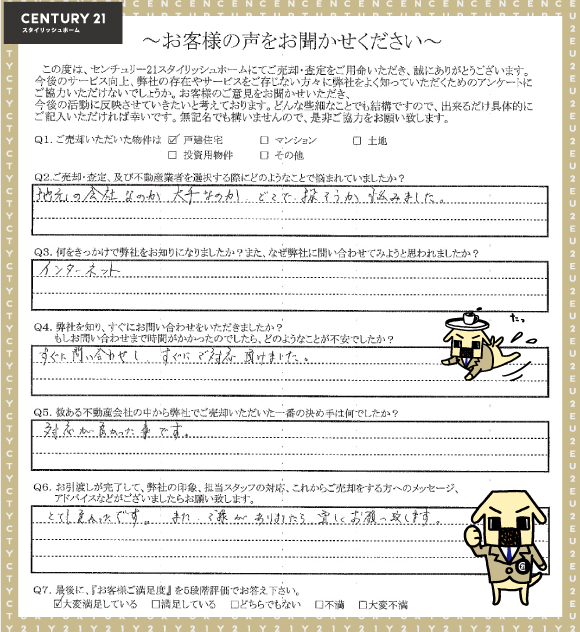 CENTURY 21
スタイリッシュホーム
～お客様の声をお聞かせください～
この度は、センチュリー21スタイリッシュホームにてご売却・査定をご用命いただき、誠にありがとうございます。
今後のサービス向上、弊社の存在やサービスをご存じない方々に弊社をよく知っていただくためのアンケートに
ご協力いただけないでしょうか。お客様のご意見をお聞かせいただき、
今後の活動に反映させていきたいと考えております。どんな些細なことでも結構ですので、出来るだけ具体的に
ご記入いただければ幸いです。無記名でも構いませんので、是非ご協力をお願い致します。
Q1. ご売却いただいた物件は ☑ 戸建住宅 □ マンション □ 土地
□ 投資用物件 □ その他
Q2.ご売却・査定、及び不動産業者を選択する際にどのようなことで悩まれていましたか？
地元の会社なのか 大手なのか どこで 探そうか 悩みました。
Q3. 何をきっかけで弊社をお知りになりましたか？また、なぜ弊社に問い合わせてみようと思われましたか？
インターネット
Q4. 弊社を知り、すぐにお問い合わせをいただきましたか？
もしお問い合わせまで時間がかかったのでしたら、どのようなことが不安でしたか？
すぐに問い合わせし すぐに ご対応 頂けました。
たっ
Q5. 数ある不動産会社の中から弊社でご売却いただいた一番の決め手は何でしたか？
対応が良かった事です。
Q6. お引渡しが完了して、弊社の印象、担当スタッフの対応、これからご売却をする方へのメッセージ、
アドバイスなどがございましたらお願い致します。
とても良かったです。 また ご縁が ありましたら 宜しくお願い致します。
Q7. 最後に、『お客様ご満足度』を5段階評価でお答え下さい。
☑大変満足している □満足している □どちらでもない □不満 □大変不満